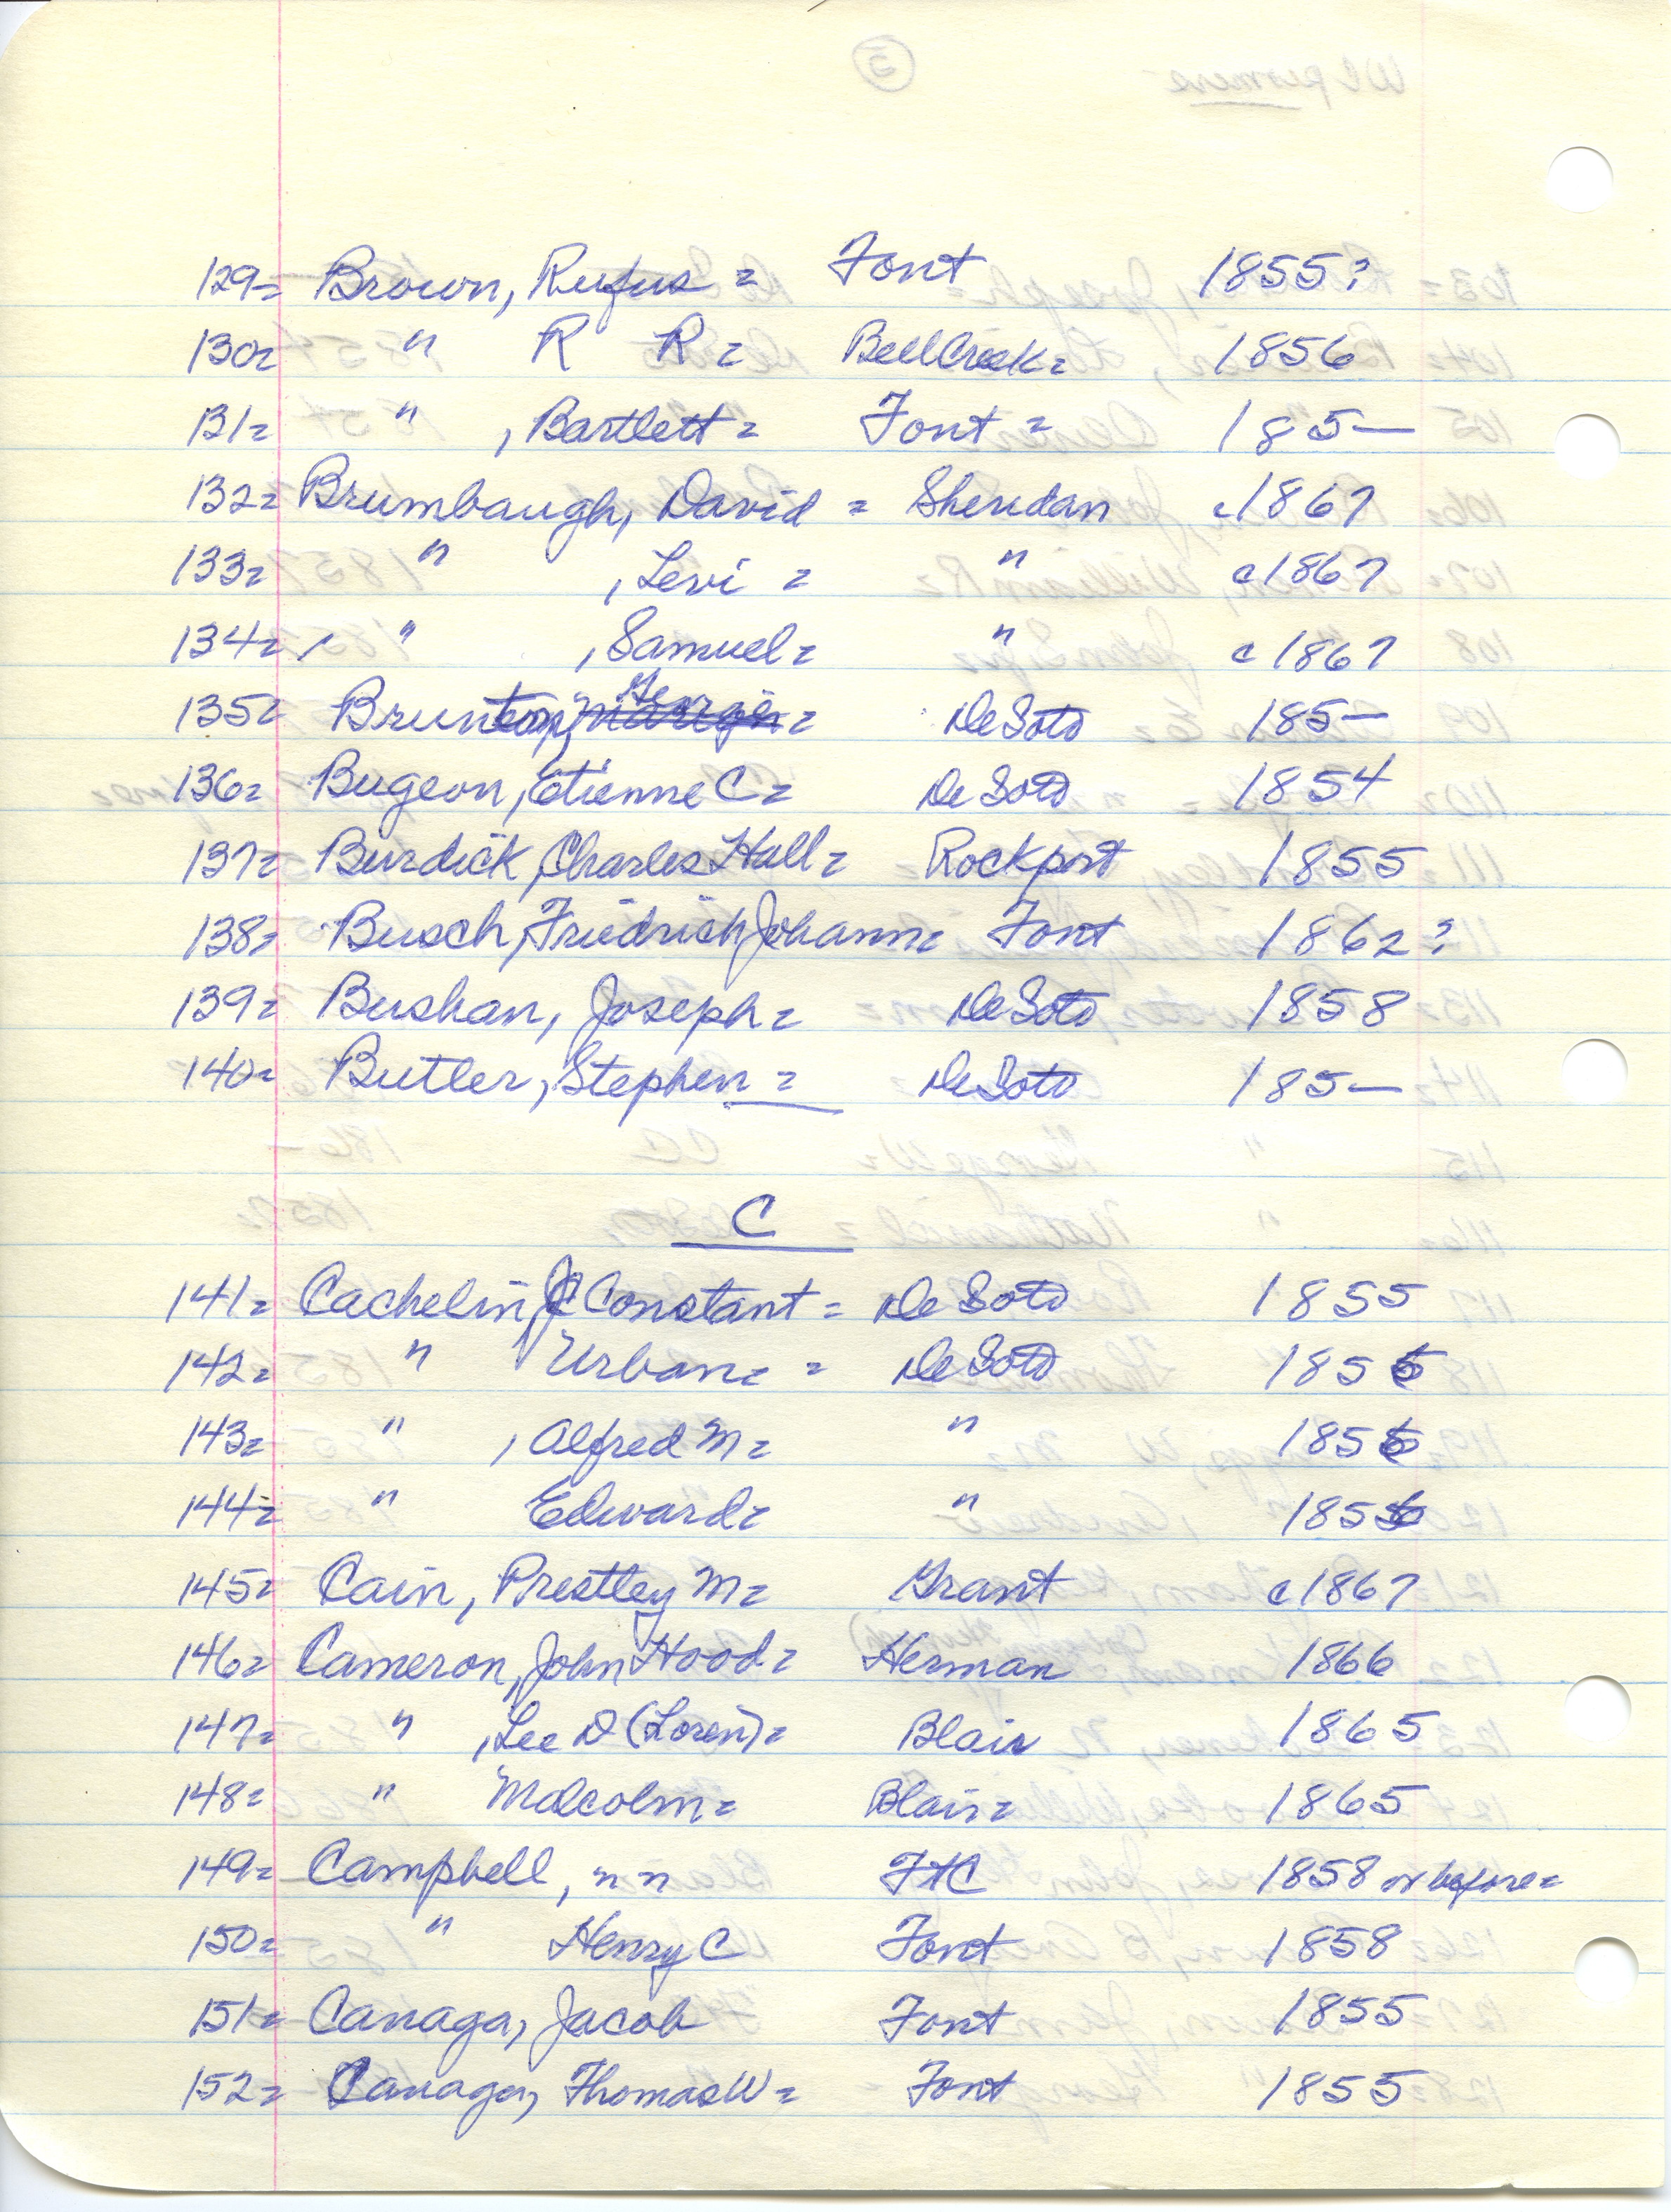 129= Brown, Rufus = Font 1855?
130= " R R = Bell Creek = 1856
131= " , Bartlett = Font = 185—
132= Brumbaugh, David = Sheridan c1867
133= " , Levi = " c1867
134= " , Samuel = " c1867
135= Brunton, George = DeSoto 185—
136= Bugeon, Etienne C = De Soto 1854
137= Burdick, Charles Hall = Rockport 1855
138= Busch, Friedrich Johann = Font 1862?
139= Bushan, Joseph = DeSoto 1858
140= Butler, Stephen = DeSoto 185—
C
141= Cachelin, J Constant = De Soto 1855
142= " Urban = = De Soto 1855
143= " , Alfred M = " 1855
144= " Edward = " 1855
145= Cain, Prestley M = Grant c1867
146= Cameron, John Hood = Herman 1866
147= " , Lee D (Loren) = Blair 1865
148= " Malcolm = Blair = 1865
149= Campbell, " " FtC 1858 or before =
150= " Henry C Font 1858
151= Canaga, Jacob Font 1855
152= Canaga, Thomas W = Font 1855